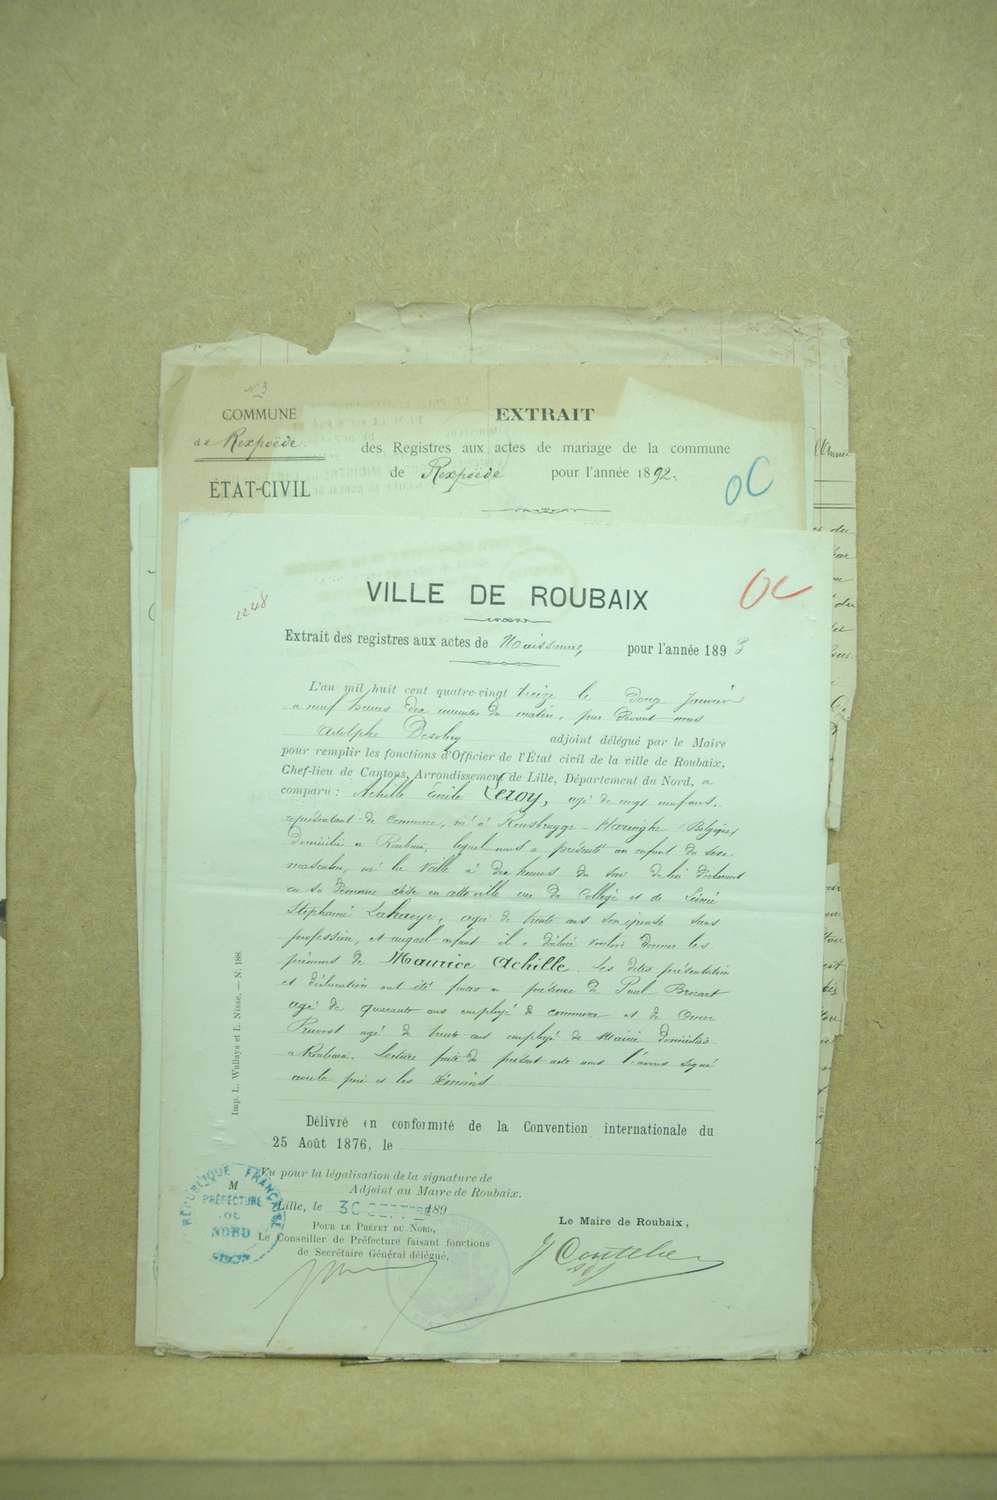 N 3
COMMUNE
de Rexpoëde.
ÉTAT-CIVIL
EXTRAIT
des Registres aux actes de mariage de la commune
de Rexpoëde pour l'année 1892.
OC
2248
VILLE DE ROUBAIX
OC
Extrait des registres aux actes de Naissance, pour l'année 1893
L'an mil huit cent quatre-vingt treize le Janvier
a neuf heures dix minutes du matin, par devant nous
Adolphe adjoint délégué par le Maire
pour remplir les fonctions d'Officier de l'État civil de la ville de Roubaix,
Chef-lieu de Cantons, Arrondissement de Lille, Département du Nord, a
comparu : Achille Emile Leroy, agé de vingt neuf ans,
représentant de commerce, né à Rousbrugge-Haringhe (Belgique)
domicilié a Roubaix, lequel nous a présenté un enfant du sexe
masculin, né la veille à dix heures du soir de lui déclarant
en sa demeure sise en cette ville rue du Collège et de
Stéphanie Lahaeye, agée de trente ans son épouse sans
profession, et auquel enfant il a déclaré vouloir donner les
prénoms de Maurice Achille. Les dites présentation
et déclaration ont été faites en présence de Paul
agé de quarante ans employé de commerce et de Omer
Pruvost agé de trente ans employé de Mairie domiciliés
a Roubaix. Lecture faite du présent acte nous l'avons signé
avec le père et les témoins
Délivré en conformité de la Convention internationale du
25 Août 1876, le
Vu pour la légalisation de la signature de
M
Adjoint au Maire de Roubaix.
Lille, le 30 189
POUR LE PRÉFET DU NORD,
Le Conseiller de Préfecture faisant fonctions
de Secrétaire Général délégué,
Le Maire de Roubaix,
RÉPUBLIQUE FRANÇAISE
PRÉFECTURE
DU
NORD
Imp. L. Wallays et L. Nisse. — N. 188.